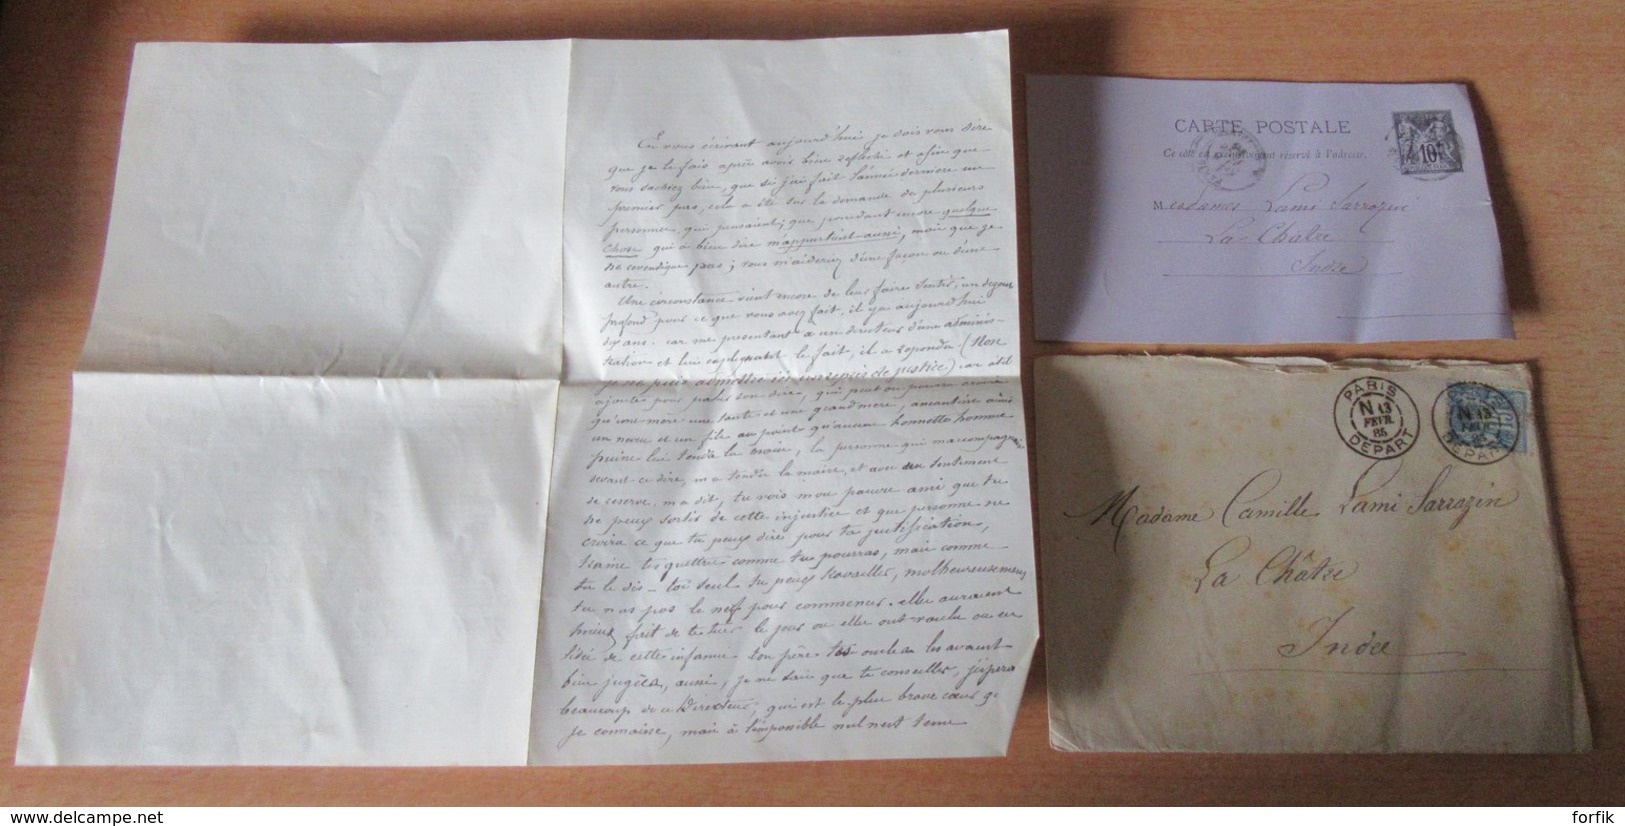 En vous écrivant aujourd'hui je dois vous dire
que je le fais après avoir bien réfléchi et afin que
vous sachiez bien, que si j'ai fait l'année dernière un
premier pas, cela a été sur la demande de plusieurs
personnes qui pensaient, que possédant encore quelque
chose qui à bien dire m'appartient aussi, mais que je
ne revendique pas; vous m'aideriez d'une façon ou d'une
autre.
Une circonstance vient encore de leur faire sentir, un dégout
profond pour ce que vous avez fait, il y a aujourd'hui
dix ans. car me présentant à un directeur d'une adminis-
tration et lui expliquant le fait, il a répondu (Non
je ne puis admettre ces principes de justice) car a-t-il
ajouté vous pensez son dire, qui peut ou pourra croire
qu'une mère une tante et une grand mère,
un neveu et un fils au point qu'aucun honnette homme
puisse lui tendre la main, la personne qui m'accompagnait
devant ce dire, m'a tendu la main, et avec un sentiment
de réserve m'a dit, tu vois mon pauvre ami que tu
ne peux sortir de cette injustice et que personne ne
croira ce que tu peux dire pour ta justification,
comme tu pourras, mais comme
tu le dis - toi seul tu peux travailler, malheureusement
tu n'as pas le nerf pour commencer. elles auraient
mieux fait de te tuer le jour ou elles ont voulu ou eu
l'idée de cette infamie ton père tes oncles les avaient
bien jugées, aussi, je ne sais que te conseiller, j'espère
beaucoup de ce Directeur, qui est le plus brave cœur q
je connaisse, mais à l'impossible nul n'est tenu
CARTE POSTALE
Ce côté est exclusivement réservé à l'adresse.
10
Mesdames Lami Sarrazin
La Chatre
Indre
PARIS
N 13
FEVR
85
DEPART
N 13
DEPART
Madame Camille Lami Sarrazin
La Châtre
Indre
delcampe.net
forfik